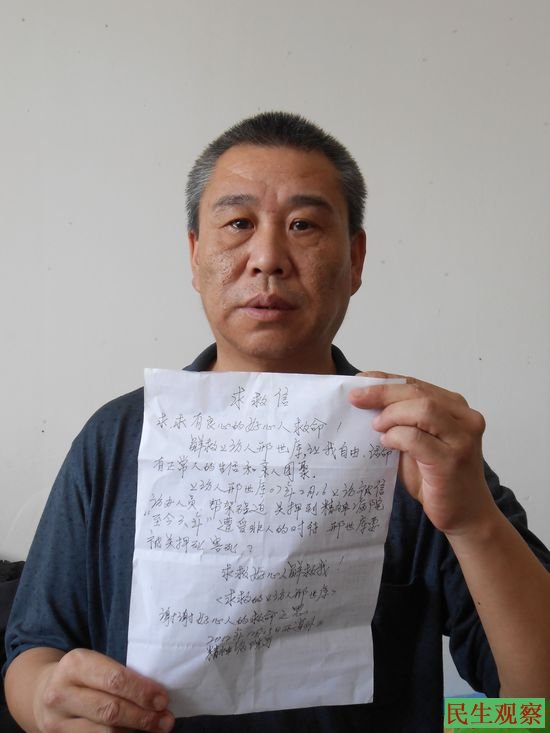 求救信
求求有良心的好心人救命！
解救上访人邢世库,让我自由、活命
有正常人的生活和亲人团聚。
上访人邢世库07年2月6上访被信
访办人员 绑架强迫关押到精神病院
"至今六年" 遭受非人的对待 邢世库要
被关押死、害死？
求救好心人解救我！
<求救的上访人邢世库>
谢谢好心人的救命之恩
民生观察